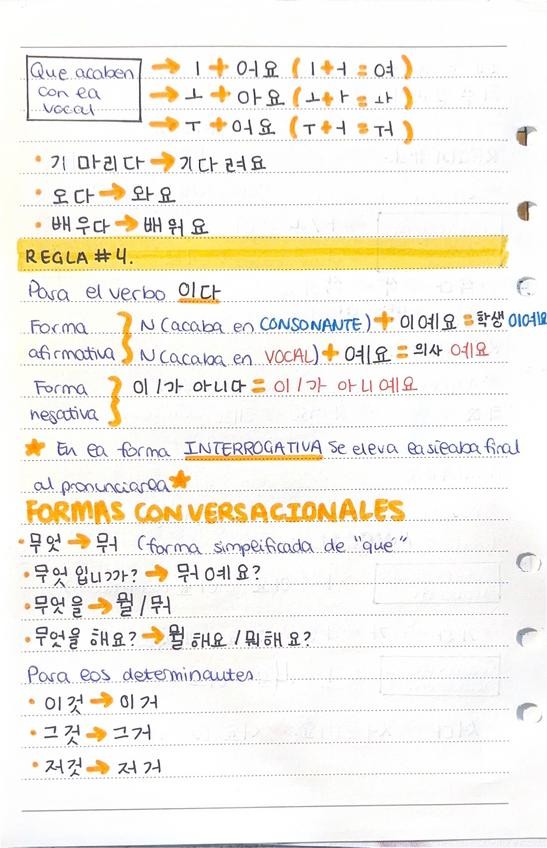 Que acaben → ㅣ + 어요 (ㅣ+ㅓ = 여)
con la → ㅗ + 아요 (ㅗ+ㅏ = ㅘ)
vocal → ㅜ + 어요 (ㅜ+ㅓ = ㅝ)
• 기 마리다 → 기다려요
• 오다 → 와요
• 배우다 → 배워요
REGLA #4.
Para el verbo 이다
Forma } N (acaba en CONSONANTE) + 이예요 = 학생 이예요
afirmativa } N (acaba en VOCAL) + 예요 = 의사 예요
Forma } 이/가 아니다 = 이/가 아니예요
negativa
★ En la forma INTERROGATIVA se eleva la sílaba final
al pronunciarla ★
FORMAS CONVERSACIONALES
• 무엇 → 뭐 (forma simplificada de "que"
• 무엇 입니까? → 뭐예요?
• 무엇을 → 뭘/뭐
• 무엇을 해요? → 뭘 해요 / 뭐해요?
Para los determinautes
• 이것 → 이거
• 그것 → 그거
• 저것 → 저거